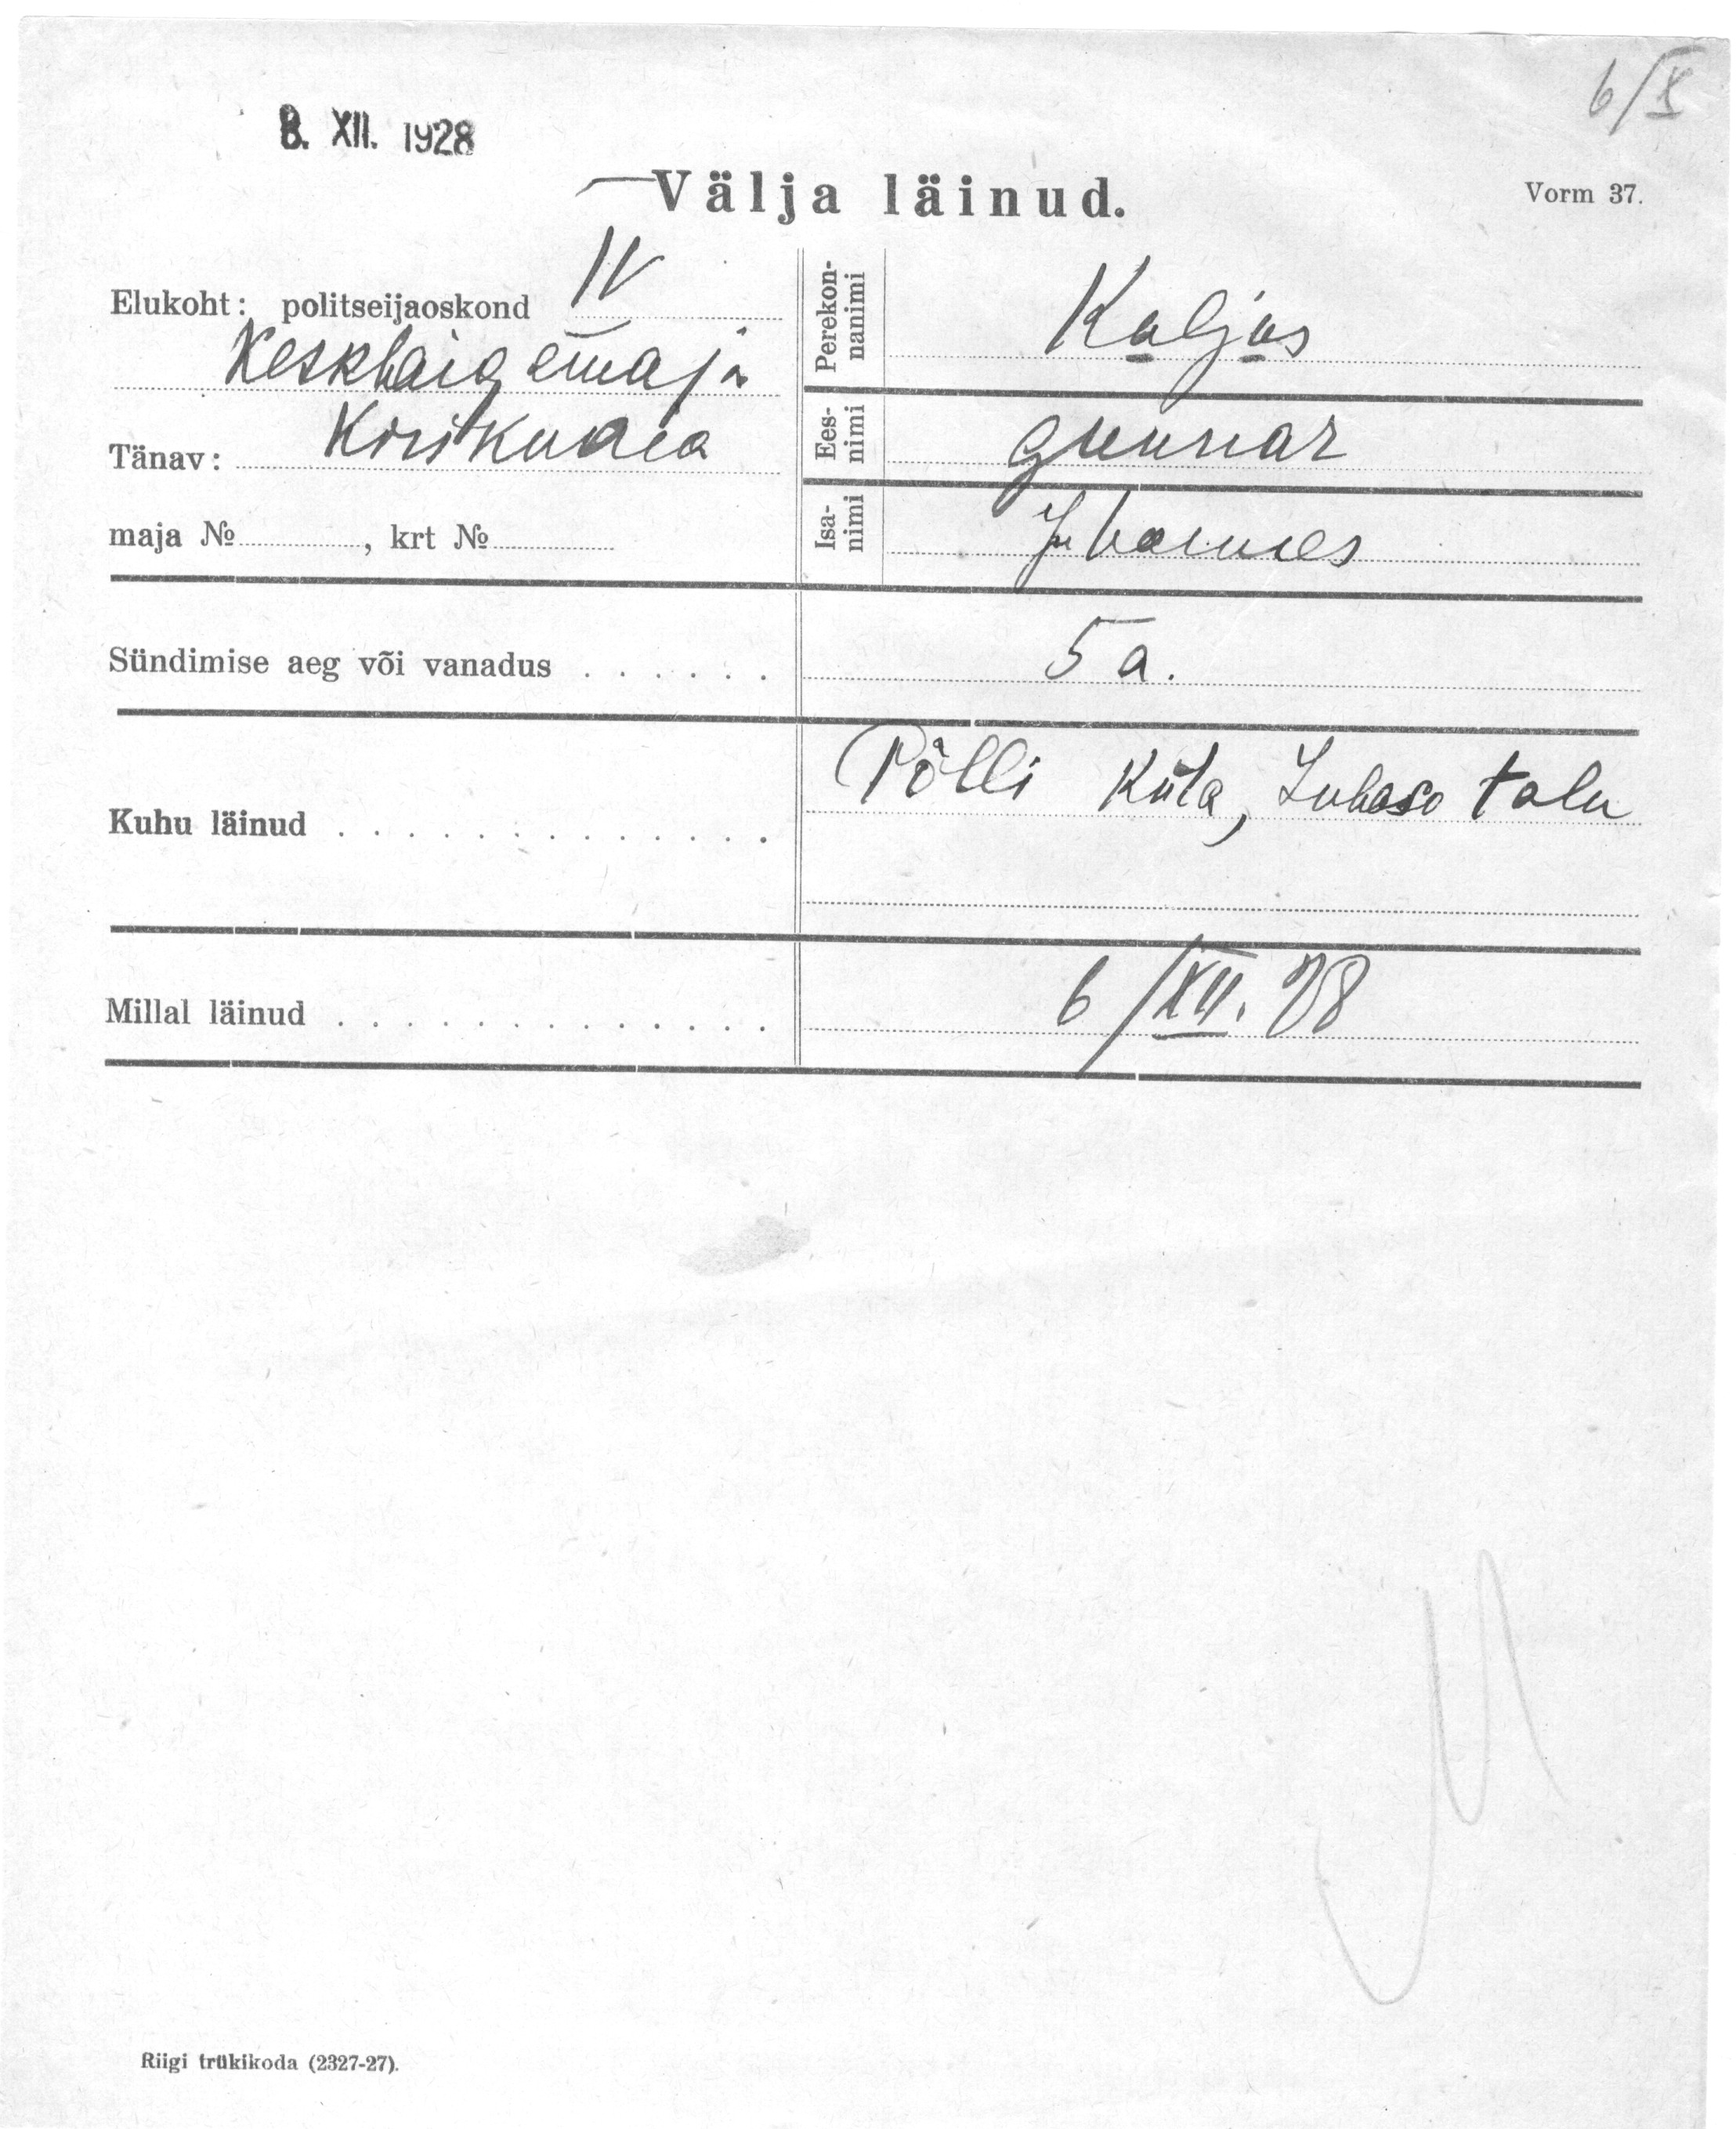 6/X
8. XII. 1928
Välja läinud.
Vorm 37.
Elukoht: politseijaoskond IV
Keskhaigemaja
Tänav: Kirikuaia
maja № , krt №
Perekon-
nanimi
Kaljas
Ees-
nimi
Gunnar
Isa-
nimi
Juhannes
Sündimise aeg või vanadus . . . . . .
5 a.
Kuhu läinud . . . . . . . . . . . . .
Põlli küla, talu
Millal läinud . . . . . . . . . . . . .
6/XII. 28
Riigi trükikoda (2327-27).